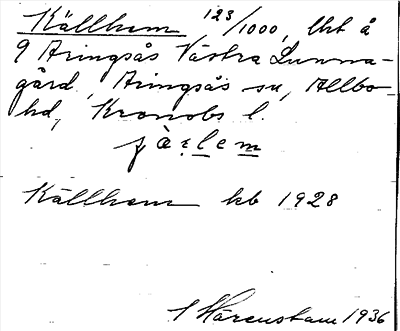 Källhem 123/1000, lht å
9 Aringsås Västra Lunna-
gård, Aringsås sn, Allbo
hd, Kronobs l.
Källhem kb 1928
1936